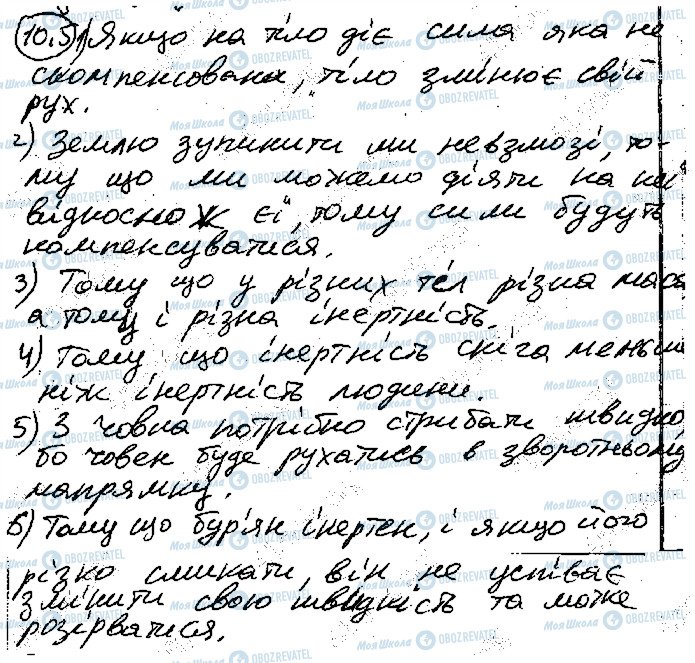 10.5 1) Якщо на тіло діє сила яка не
скомпенсована, тіло змінює свій
рух.
2) Землю зупинити ми невзмозі, то-
му що ми можемо діяти на неї
відносно її, тому сили будуть
компенсуватися.
3) Тому що у різних тіл різна маса
а тому і різна інертність.
4) Тому що інертність сніга меньш
ніж інертність людини.
5) З човна потрібно стрибати швидко,
бо човен буде рухатись в зворотньому
напрямку.
6) Тому що бур'ян інертен, і якщо його
різко смикати, він не успіває
змінити свою швидкість та може
розірватися.